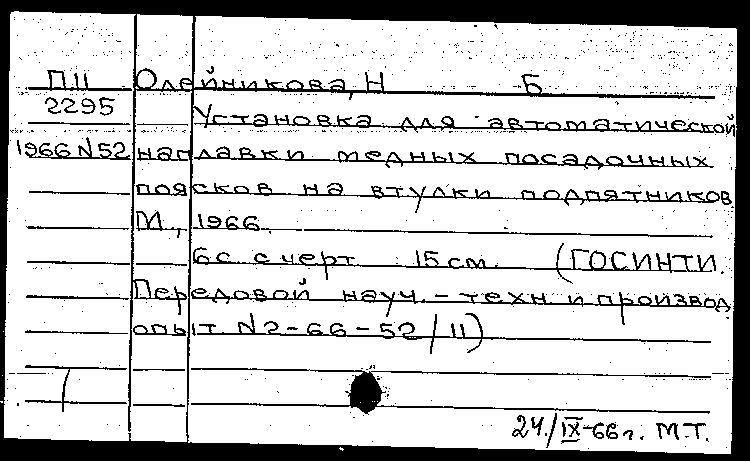 П11 Олейникова, Н Б
2295 Установка для автоматической
1966 N52 наплавки медных посадочных
поясков на втулки подпятников
М., 1966.
6с с черт 15 см. (ГОСИНТИ.
Передовой науч. - техн и производ
опыт N2-66-52/11)
24/IX-66г. М.Т.